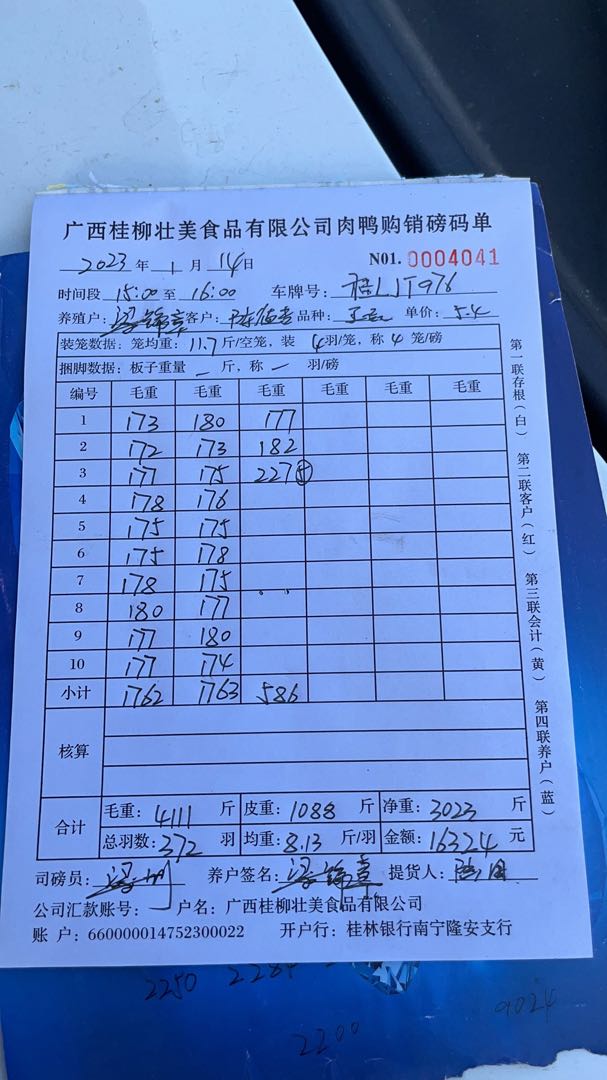 广西桂柳壮美食品有限公司肉鸭购销磅码单
2023 年 1 月 14 日 N01. 0004041
时间段 15:00 至 16:00 车牌号: 桂LJT976
养殖户: 梁锦章 客户: 品种: 单价: 5.4
装笼数据: 笼均重: 11.7 斤/空笼, 装 4 羽/笼, 称 4 笼/磅
捆脚数据: 板子重量 — 斤, 称 — 羽/磅
编号 毛重 毛重 毛重 毛重 毛重 毛重
1 173 180 177
2 172 173 182
3 177 175 227⑤
4 178 176
5 175 175
6 175 178
7 178 175
8 180 177
9 177 180
10 177 174
小计 1762 1763 586
核算
合计 毛重: 4111 斤 皮重: 1088 斤 净重: 3023 斤
总羽数: 372 羽 均重: 8.13 斤/羽 金额: 16324 元
司磅员: 养户签名: 梁锦章 提货人:
公司汇款账号: 户名: 广西桂柳壮美食品有限公司
账 户: 660000014752300022 开户行: 桂林银行南宁隆安支行
第一联存根(白) 第二联客户(红) 第三联会计(黄) 第四联养户(蓝)
2250
2200
9024